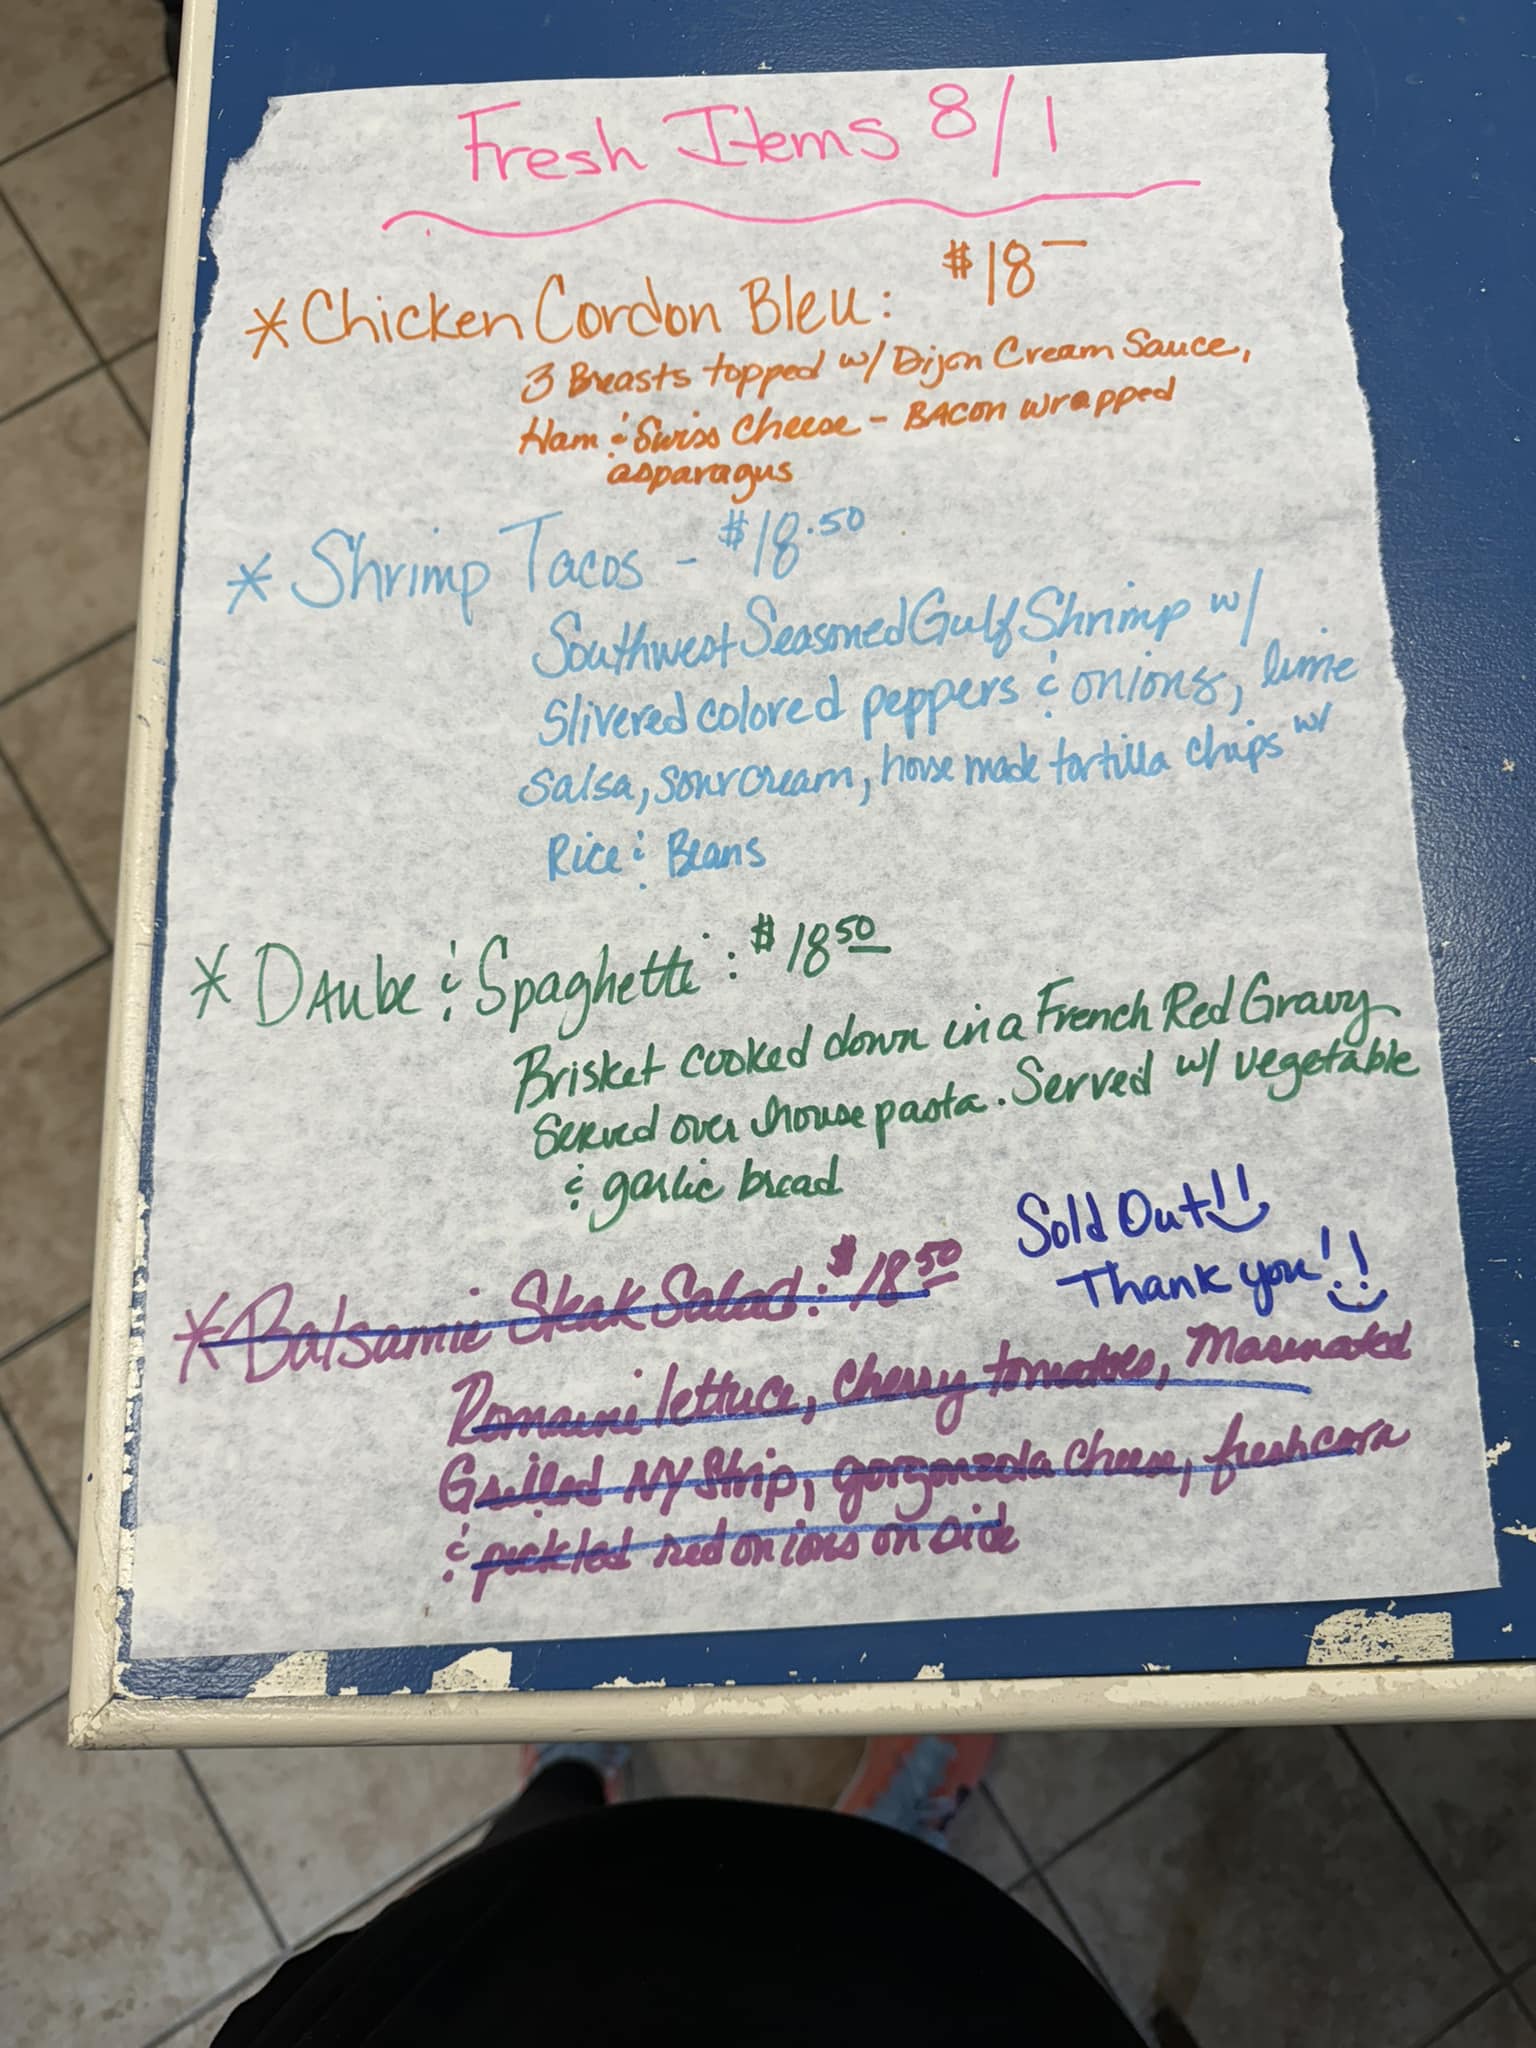 Fresh Items 8/1
* Chicken Cordon Bleu: $18—
3 Breasts topped w/ Dijon Cream Sauce,
Ham & Swiss Cheese - BACON wrapped
asparagus
* Shrimp Tacos - $18.50
Southwest Seasoned Gulf Shrimp w/
Slivered colored peppers & onions, lime
Salsa, sour cream, house made tortilla chips w/
Rice & Beans
* DAube & Spaghetti: $18 50
Brisket cooked down in a French Red Gravy
Served over house pasta. Served w/ vegetable
& garlic bread
Sold Out!!
Thank you!!
* Balsamic Steak Salad: $18 50
Romaine lettuce, Cherry tomatoes, Marinated
Grilled NY Strip, gorgonzola Cheese, fresh corn
& pickled red onions on side